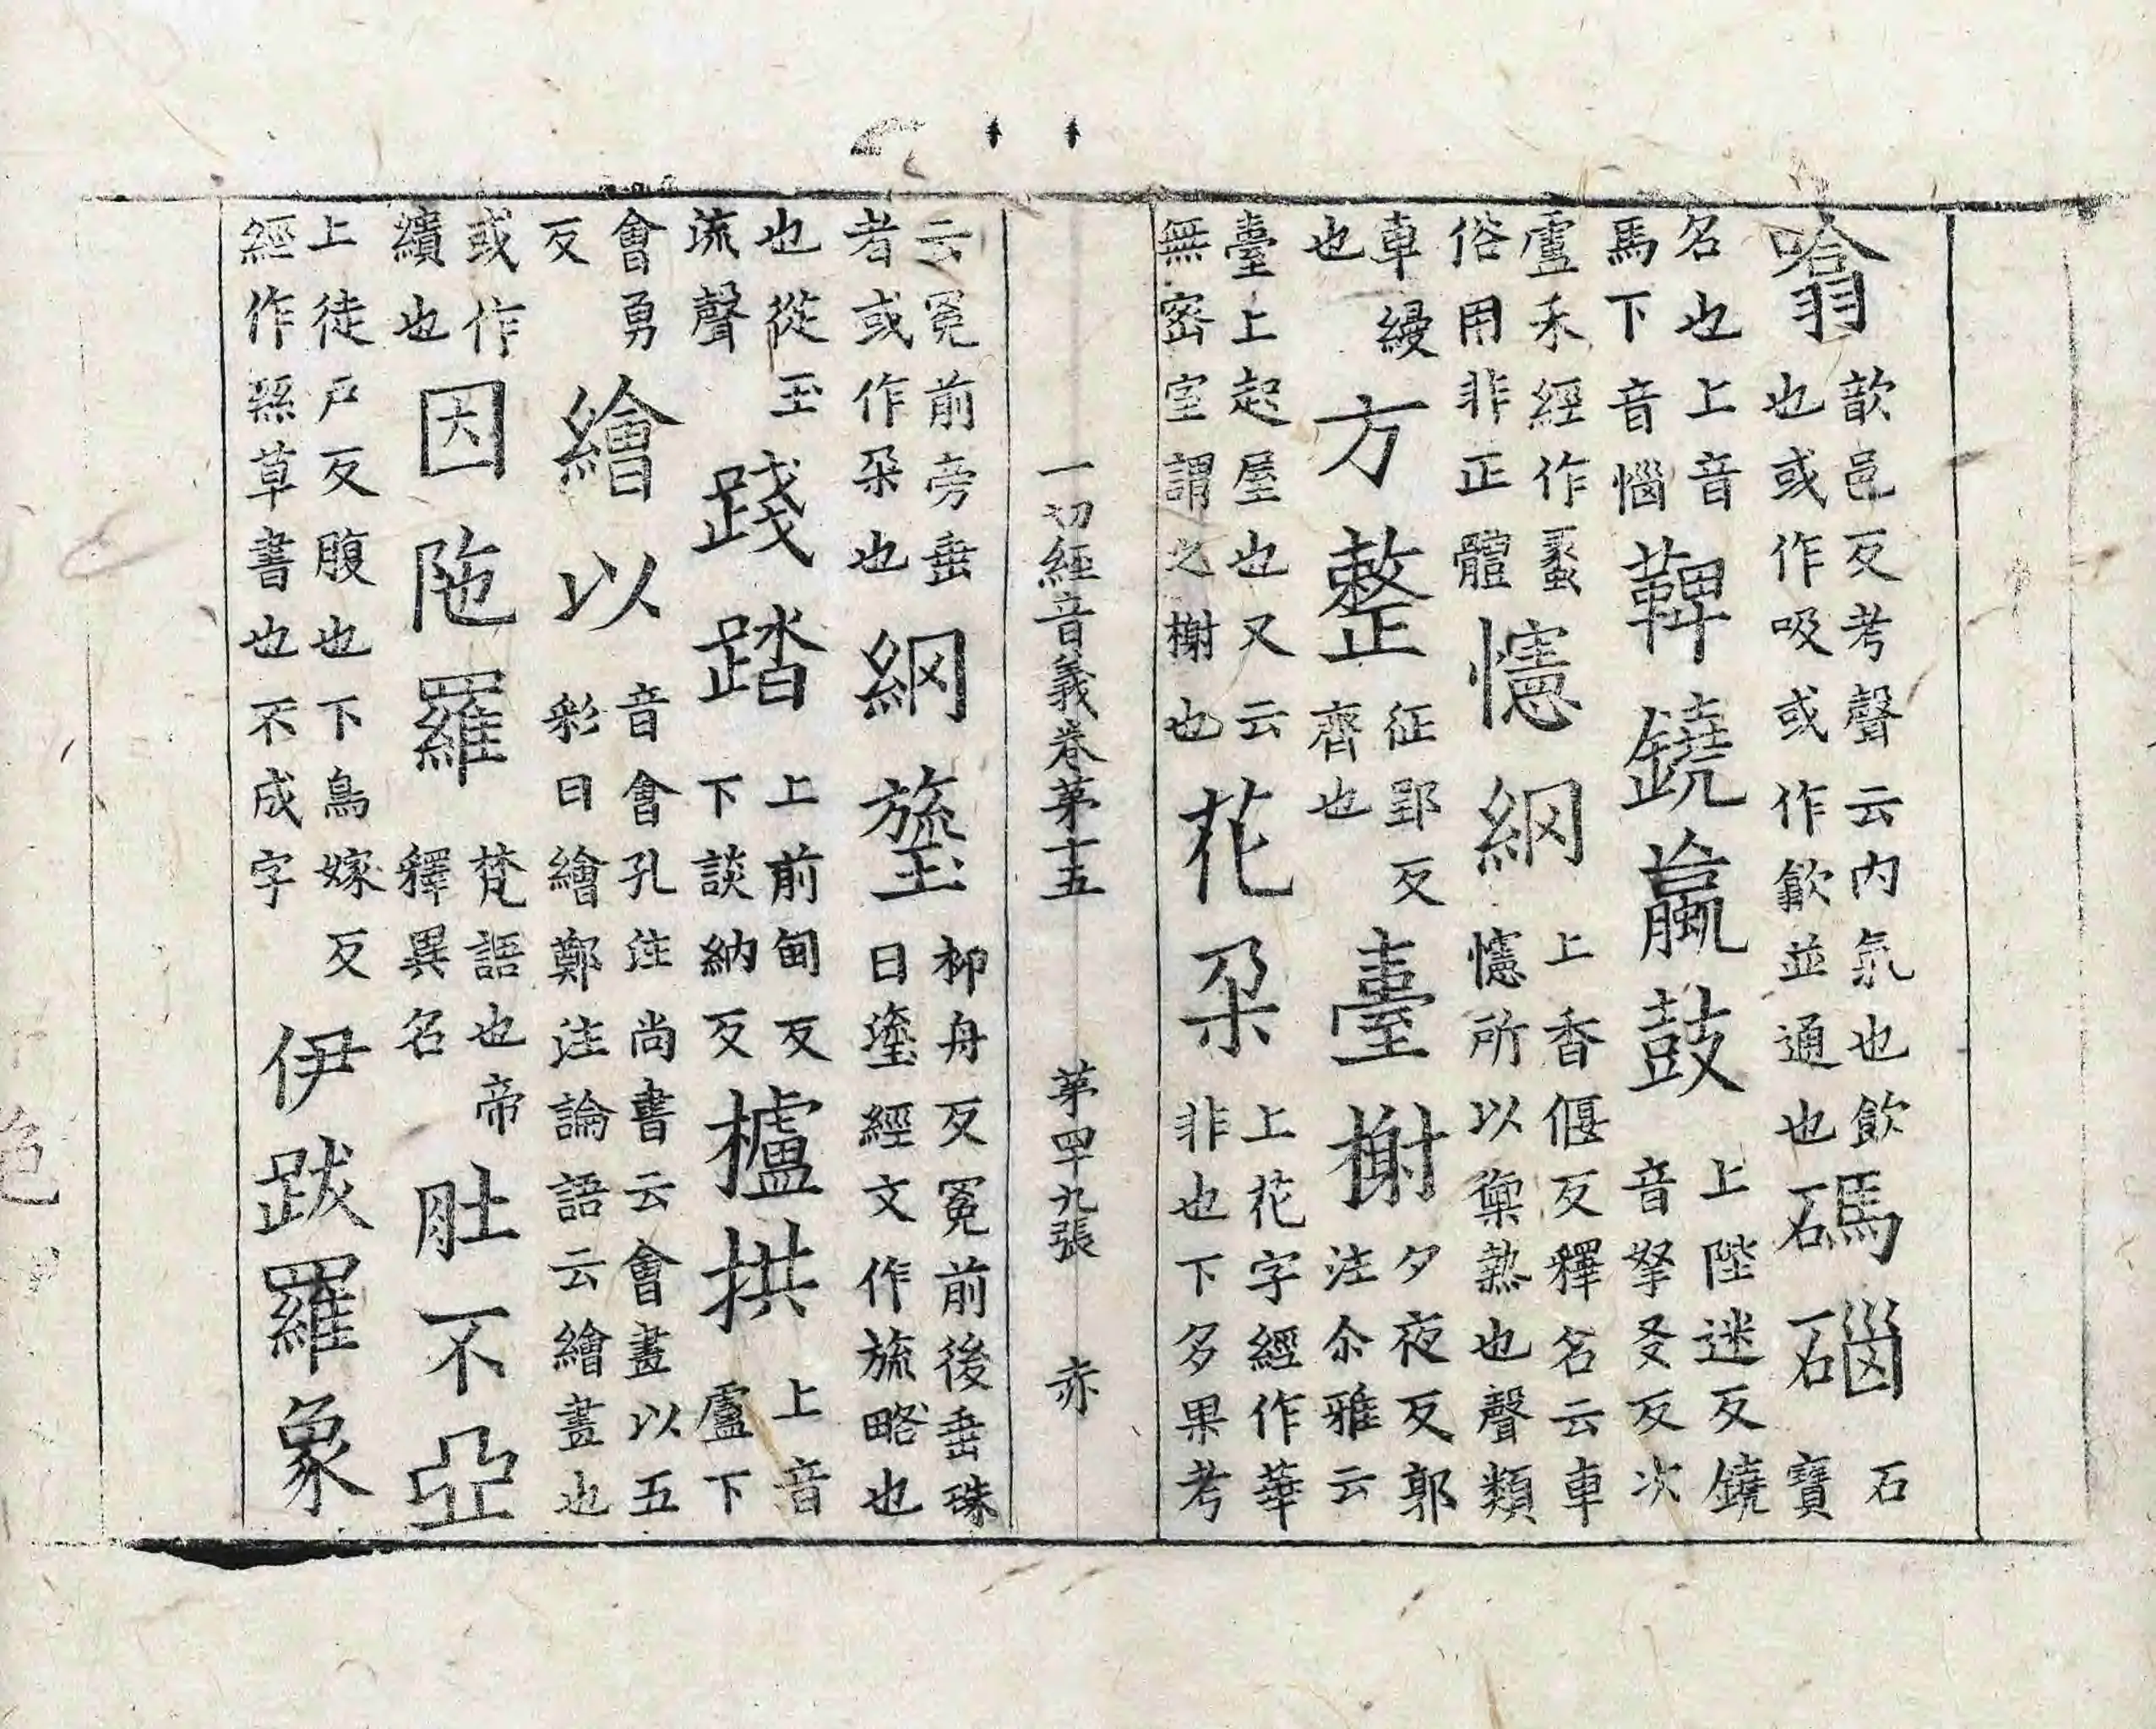 噏歆邑反考聲云内氣也飲也或作吸或作歙並通也碼碯石寶
名也上音馬下音惱鞞鐃蠃鼓上陛迷反鐃音拏爻反次
盧禾經作蠡俗用非正體幰網上香偃反釋名云車幰所以禦熱也聲類
車縵也方整征郢反齊也臺榭夕夜反郭注尒雅云
臺上起屋也又云無密室謂之榭也花朶上花字經作華非也下多果考
一切經音義卷苐十五 苐四十九張 赤
云冕前旁垂者或作朶也網瑬柳舟反冕前後垂珠曰瑬經文作旒略也
也從玉流聲踐踏上前甸反下談納反櫨拱上音盧下
會勇反繪以音會孔注尚書云會畫以五彩曰繪鄭注論語云繪畫也
或作繢也因陁羅梵語也帝釋異名肚不亞
上徒戶反腹也下烏嫁反經作草書也不成字伊跋羅象